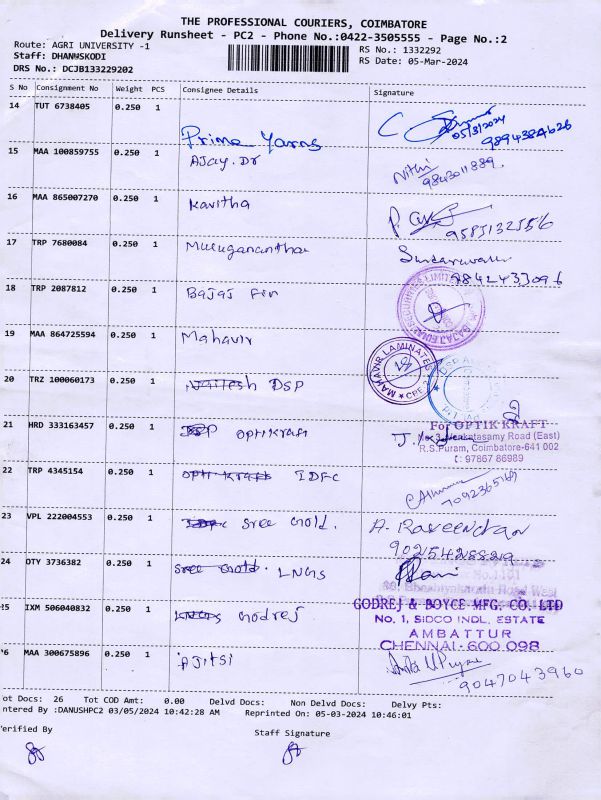 THE PROFESSIONAL COURIERS, COIMBATORE
Delivery Runsheet - PC2 - Phone No.:0422-3505555 - Page No.:2
Route: AGRI UNIVERSITY -1
RS No.: 1332292
Staff: DHANUSKODI
RS Date: 05-Mar-2024
DRS No.: DCJB133229202
S No Consignment No Weight PCS Consignee Details Signature
14 TUT 6738405 0.250 1 Prima Yarns
05/3/2024
9894384626
15 MAA 100859755 0.250 1 AJay. Dr
Nithi
9843011889.
16 MAA 865007270 0.250 1 Kavitha
9585132556
17 TRP 7680084 0.250 1 Murugananthan
9842433096
18 TRP 2087812 0.250 1 Bajaj Fin
19 MAA 864725594 0.250 1 Mahavir
MAHAVIR LAMINATES
20 TRZ 100060173 0.250 1 DSP
21 HRD 333163457 0.250 1 OPtikraft
For OPTIK KRAFT
Venkatasamy Road (East)
R.S.Puram, Coimbatore-641 002
: 97867 86989
22 TRP 4345154 0.250 1 Opti kraft IDFC
23 VPL 222004553 0.250 1 Sree Gold.
A. Raveendran
9025428829
24 OTY 3736382 0.250 1 Sree Gold. LNGS
Rani
25 IXM 506040832 0.250 1 LNGS Godrej
GODREJ & BOYCE MFG. CO. LTD
No. 1, SIDCO INDL. ESTATE
AMBATTUR
CHENNAI-600 098
26 MAA 300675896 0.250 1 AJitsi
9047043960
ot Docs: 26 Tot COD Amt: 0.00 Delvd Docs: Non Delvd Docs: Delvy Pts:
ntered By :DANUSHPC2 03/05/2024 10:42:28 AM Reprinted On: 05-03-2024 10:46:01
erified By Staff Signature